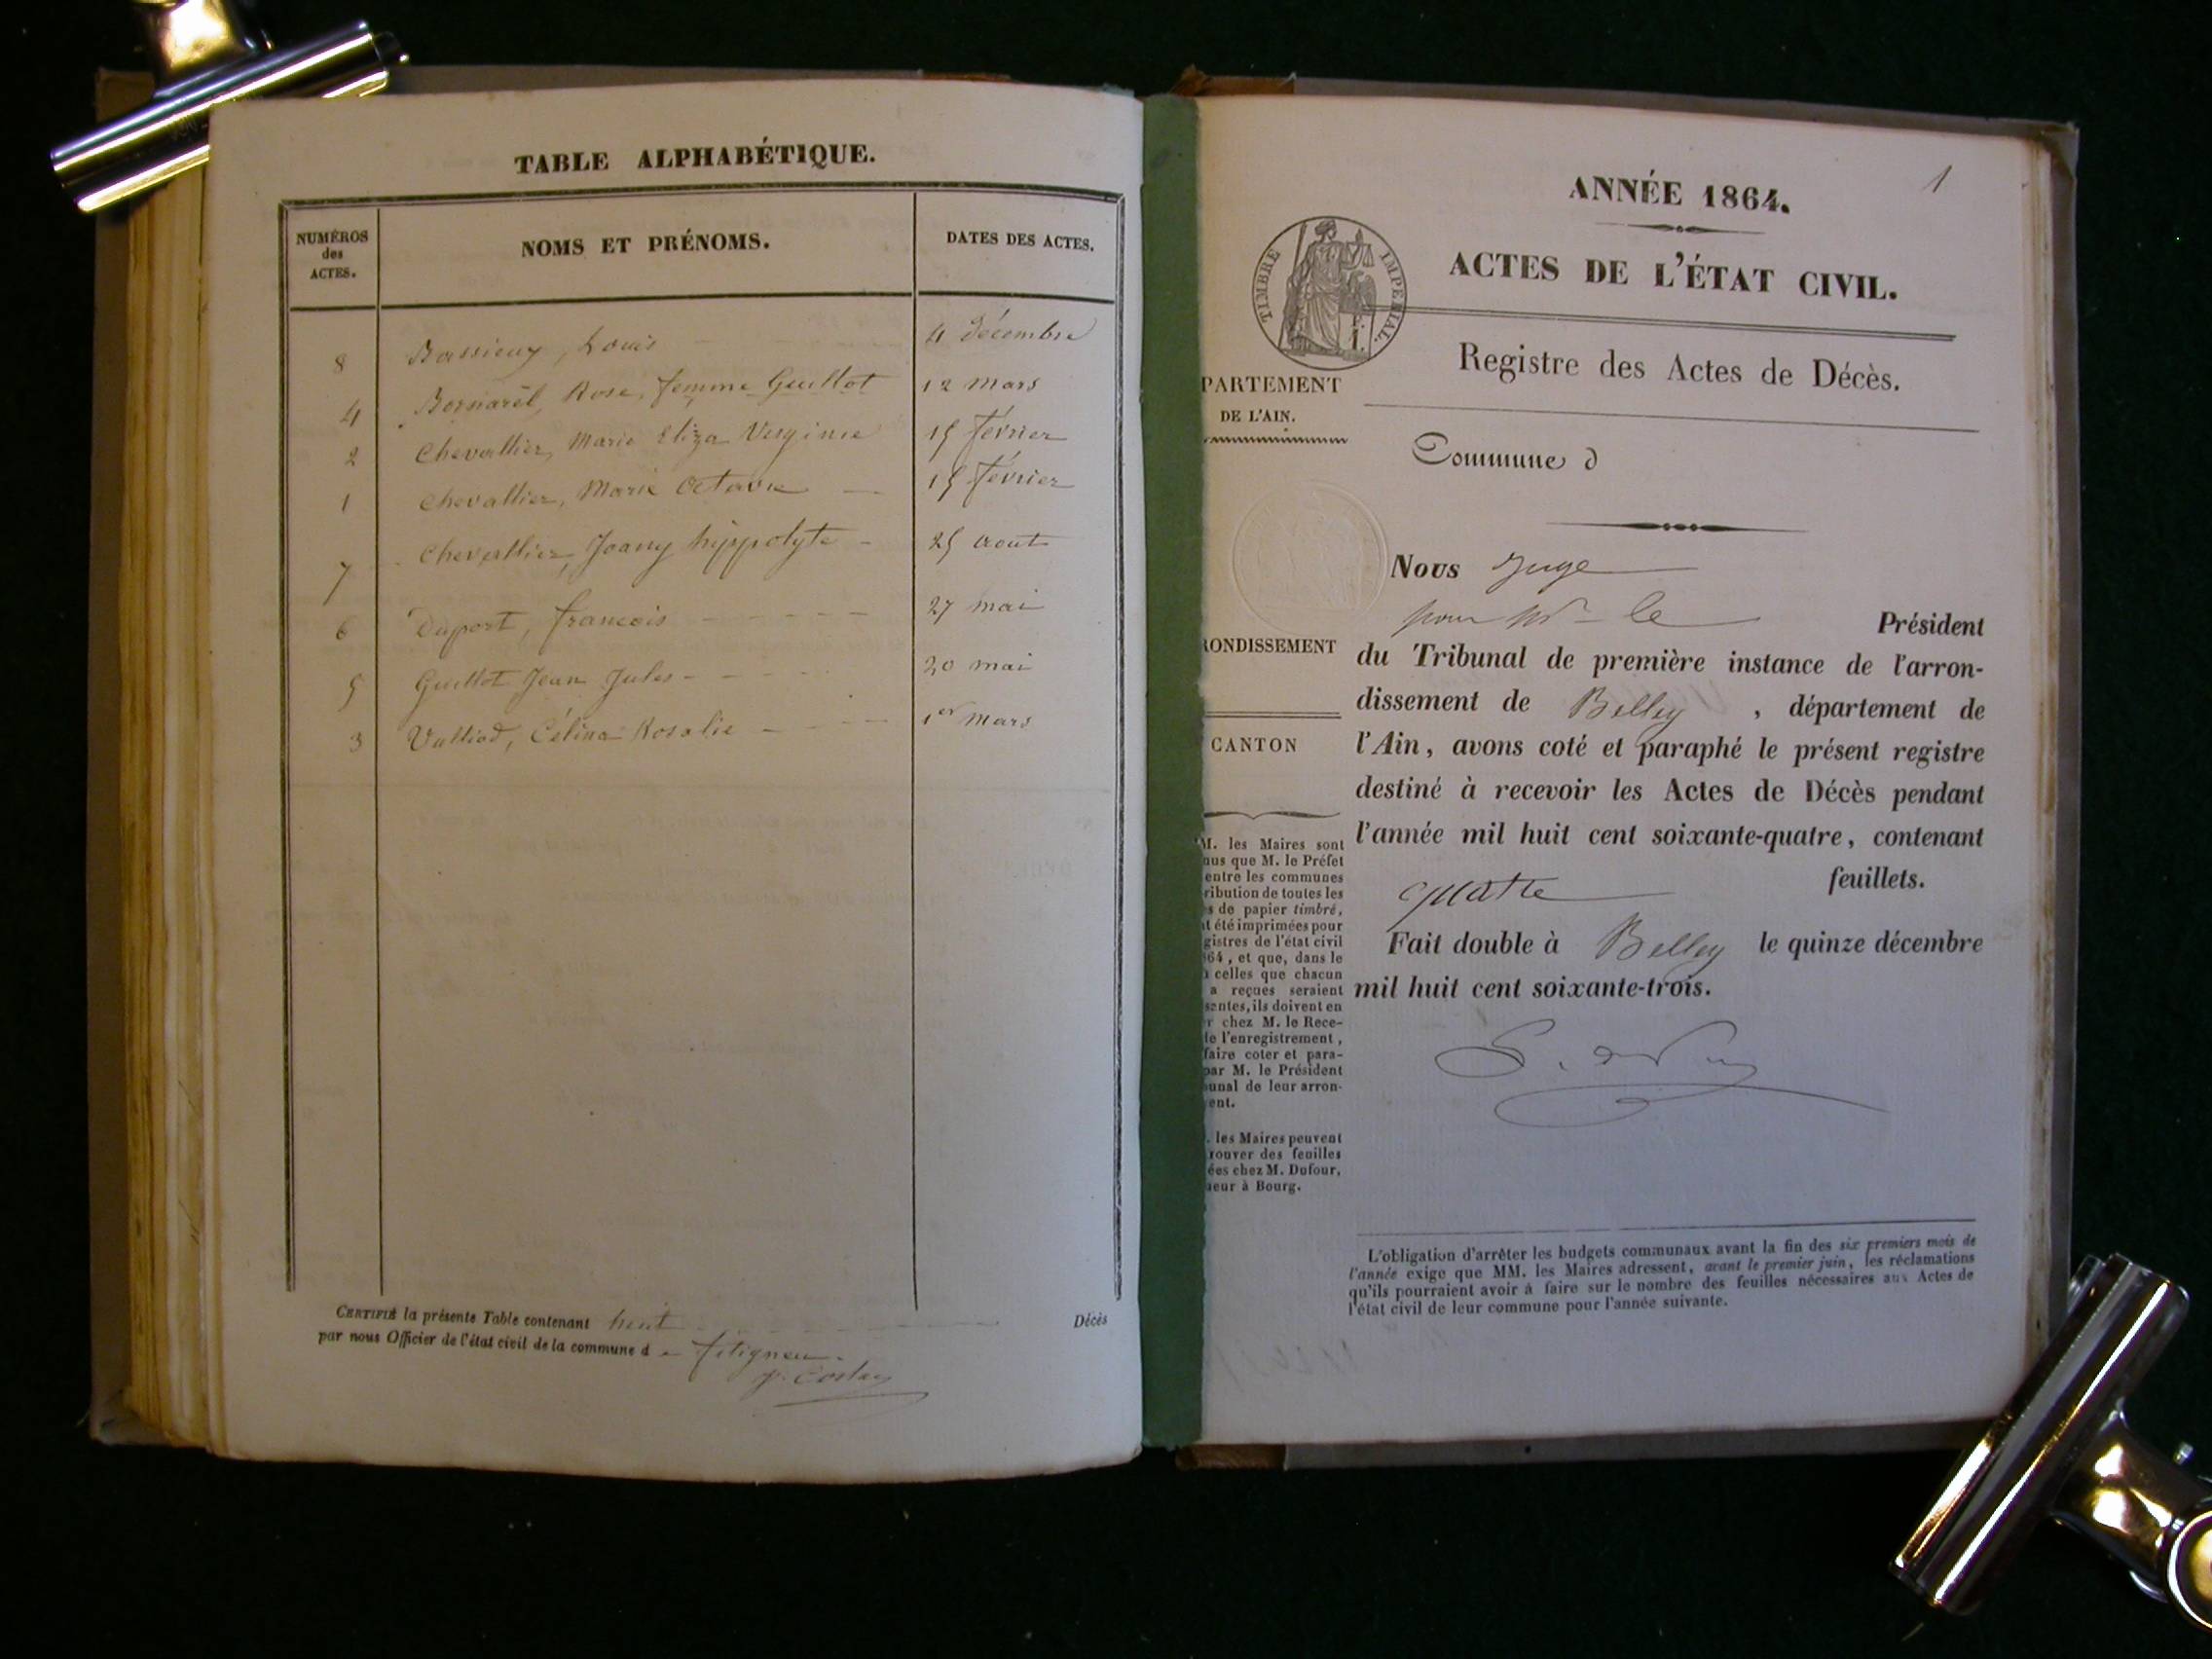 TABLE ALPHABÉTIQUE.
NUMÉROS des ACTES.
NOMS ET PRÉNOMS.
DATES DES ACTES.
8 Bassieux, Louis 4 décembre
4 Bornarel, Rose, femme Guillot 12 mars
2 Chevallier, Marie Eliza Virginie 15 février
1 Chevallier, Marie Octavie 15 février
7 Chevallier, Joany hippolyte 25 aout
6 Duport, francois 27 mai
5 Guillot Jean Jules 20 mai
3 Valliod, Célina Rosalie 1er mars
CERTIFIÉ la présente Table contenant huit Décès
par nous Officier de l'état civil de la commune de fitigneu.
1
ANNÉE 1864.
ACTES DE L'ÉTAT CIVIL.
TIMBRE IMPÉRIAL.
1.
Registre des Actes de Décès.
PARTEMENT
DE L'AIN.
Commune d
RONDISSEMENT
CANTON
M. les Maires sont
nus que M. le Préfet
entre les communes
ribution de toutes les
s de papier timbré,
t été imprimées pour
gistres de l'état civil
64, et que, dans le
celles que chacun
a reçues seraient
santes, ils doivent en
r chez M. le Rece-
de l'enregistrement,
faire coter et para-
par M. le Président
unal de leur arron-
ent.
. les Maires peuvent
rouver des feuilles
ées chez M. Dufour,
eur à Bourg.
Nous Juge
pour Mr le Président
du Tribunal de première instance de l'arron-
dissement de Belley, département de
l'Ain, avons coté et paraphé le présent registre
destiné à recevoir les Actes de Décès pendant
l'année mil huit cent soixante-quatre, contenant
quatre feuillets.
Fait double à Belley le quinze décembre
mil huit cent soixante-trois.
L'obligation d'arrêter les budgets communaux avant la fin des six premiers mois de
l'année exige que MM. les Maires adressent, avant le premier juin, les réclamations
qu'ils pourraient avoir à faire sur le nombre des feuilles nécessaires aux Actes de
l'état civil de leur commune pour l'année suivante.